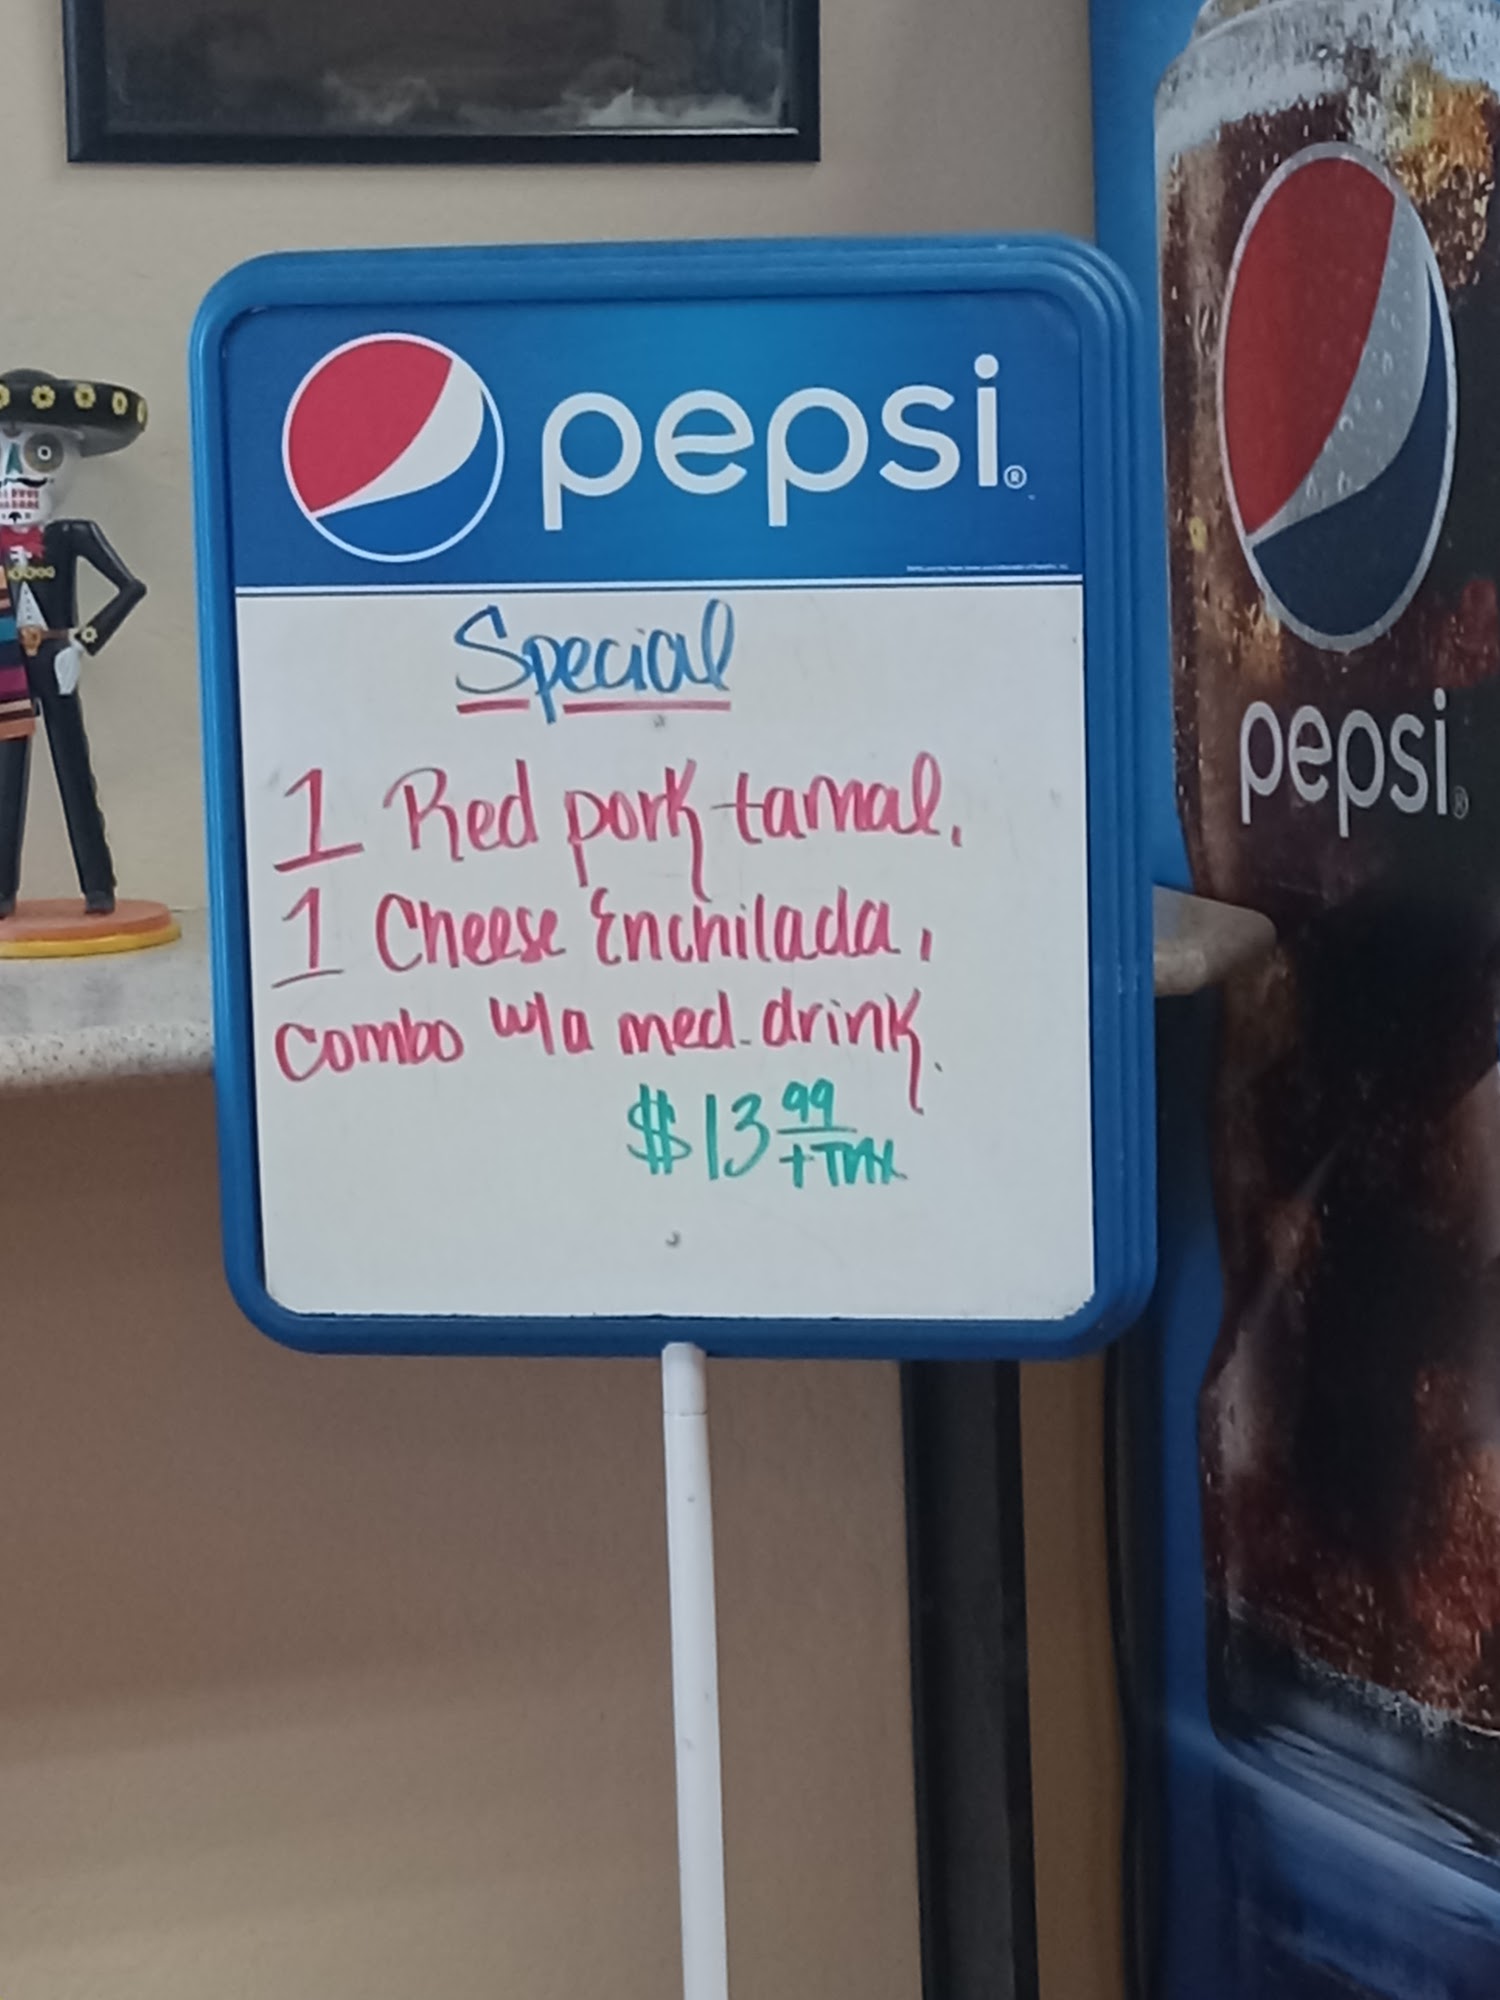 pepsi®
Special
1 Red pork tamal,
1 Cheese Enchilada,
combo w/a med. drink.
$13 99
+Tax
pepsi®